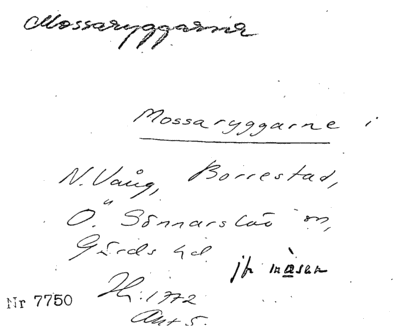 Mossaryggarne
Mossaryggarne i
N. Vång, Borrestad,
Ö. Sönnarslöv m,
Gärds hd
jfr mosen
Nr 7750
1772
Akt 5.